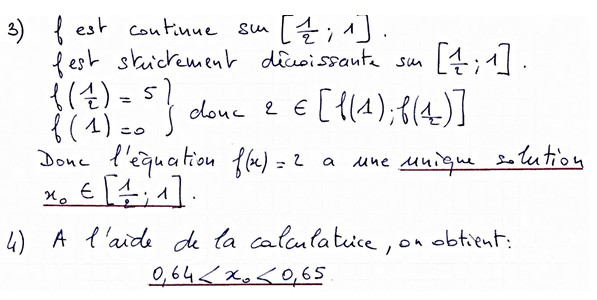 3) f est continue sur [1/2 ; 1].
f est strictement décroissante sur [1/2 ; 1].
f(1/2) = 5 }
f(1) = 0 } donc 2 ∈ [f(1) ; f(1/2)]
Donc l'équation f(x) = 2 a une unique solution
x₀ ∈ [1/2 ; 1].
4) A l'aide de la calculatrice, on obtient :
0,64 < x₀ < 0,65